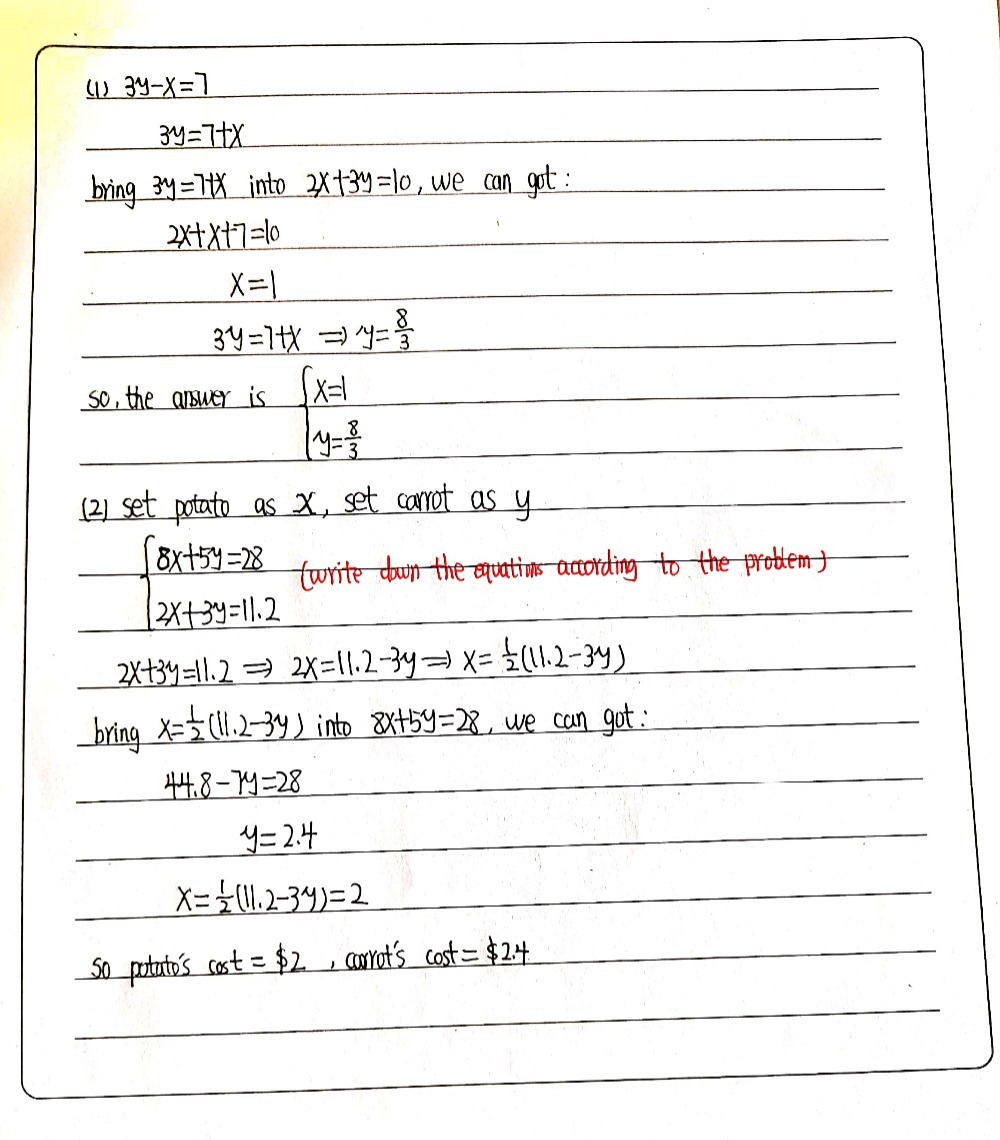 (1) 3y-x=7
3y=7+x
bring 3y=7+x into 2x+3y=10, we can got:
2x+x+7=10
x=1
3y=7+x ⇒ y=8/3
so, the answer is {x=1
y=8/3
(2) set potato as x, set carrot as y
{8x+5y=28 (write down the equations according to the problem)
2x+3y=11.2
2x+3y=11.2 ⇒ 2x=11.2-3y ⇒ x=1/2(11.2-3y)
bring x=1/2(11.2-3y) into 8x+5y=28, we can got:
44.8-7y=28
y=2.4
x=1/2(11.2-3y)=2
So potato's cost = $2, carrot's cost = $2.4